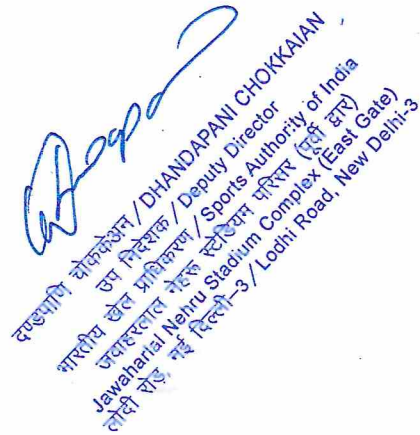 दण्डपाणि चोक्केअन / DHANDAPANI CHOKKAIAN
उप निदेशक / Deputy Director
भारतीय खेल प्राधिकरण / Sports Authority of India
जवाहरलाल नेहरू स्टेडियम परिसर (पूर्वी द्वार)
Jawaharlal Nehru Stadium Complex (East Gate)
लोदी रोड़, नई दिल्ली–3 / Lodhi Road, New Delhi-3